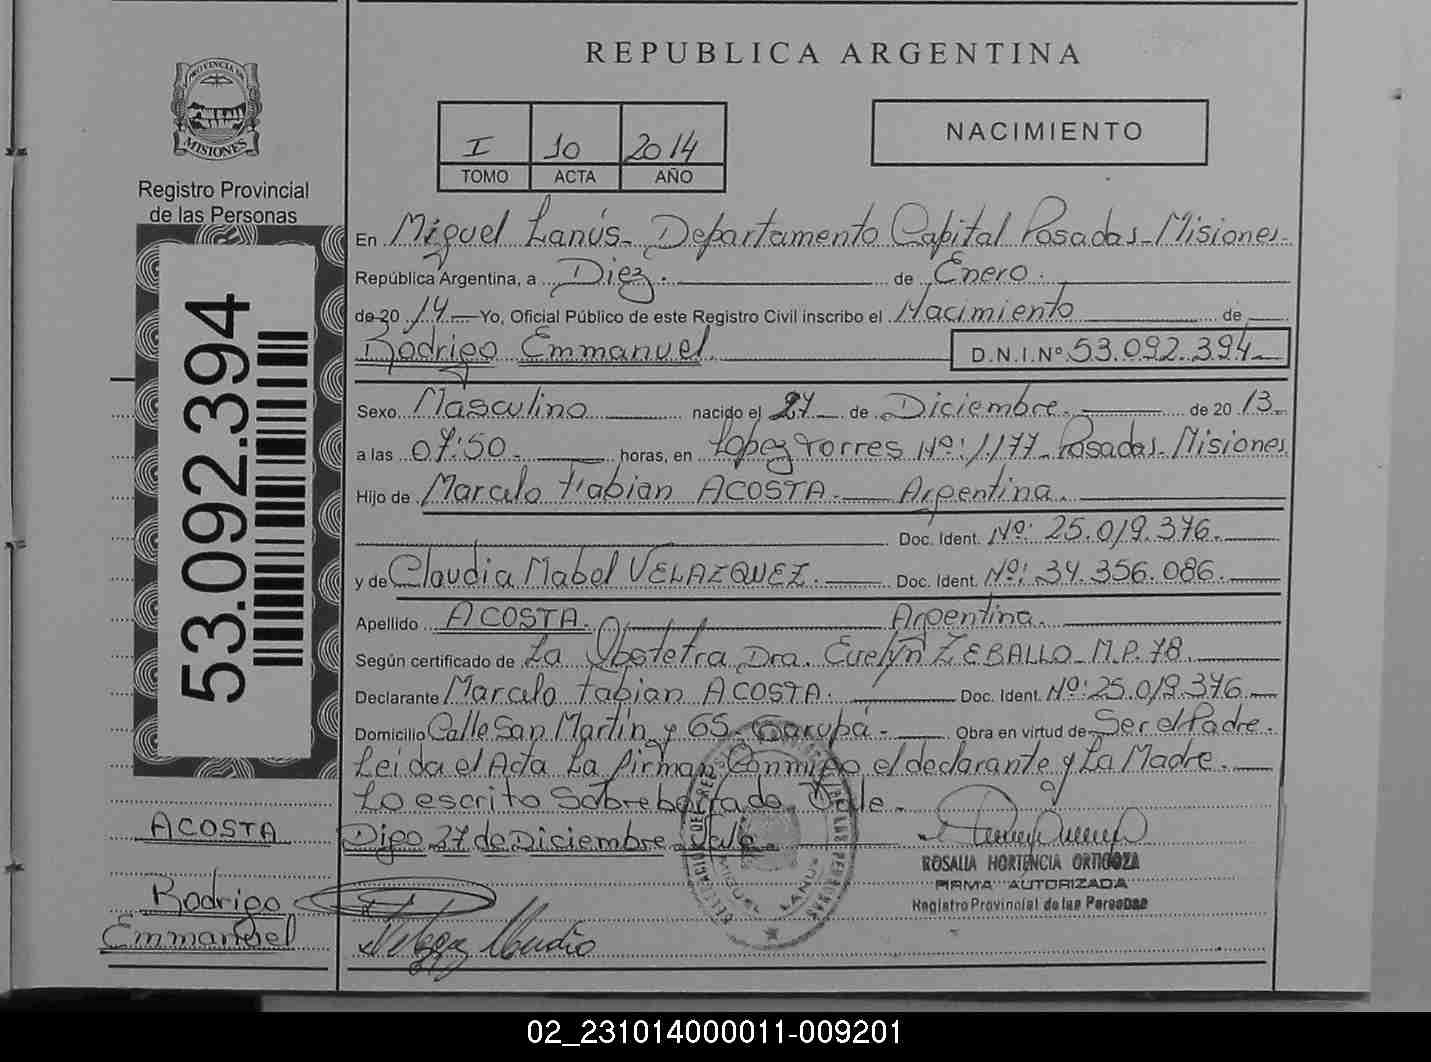 REPUBLICA ARGENTINA
PROVINCIA DE
MISIONES
Registro Provincial
de las Personas
53.092.394
I 10 2014
TOMO ACTA AÑO
NACIMIENTO
En Miguel Lanús - Departamento Capital Posadas - Misiones -
República Argentina, a Diez. de Enero.
de 2014 Yo, Oficial Público de este Registro Civil inscribo el Nacimiento de
Rodrigo Emmanuel. D.N.I.Nº 53.092.394
Sexo Masculino nacido el 27 de Diciembre. de 2013.
a las 07:50. horas, en Lopez Torres Nº: 1.177 - Posadas - Misiones
Hijo de Marcelo Fabian ACOSTA. Argentina.
Doc. Ident. Nº: 25.019.376.
y de Claudia Mabel VELAZQUEZ. Doc. Ident. Nº: 34.356.086.
Apellido ACOSTA. Argentina.
Según certificado de La Obstetra Dra. Evelyn ZEBALLO - M.P. 78.
Declarante Marcelo Fabian ACOSTA. Doc. Ident. Nº: 25.019.376
Domicilio Calle San Martín y 65 - Garupá - Obra en virtud de Ser el Padre.
Leida el Acta La firman Conmigo el declarante y La Madre.
Lo escrito Sobreborrado Vale.
Digo 27 de Diciembre Vale.
ACOSTA
Rodrigo
Emmanuel
ROSALIA HORTENCIA ORTIGOZA
FIRMA AUTORIZADA
Registro Provincial de las Personas
02_231014000011-009201